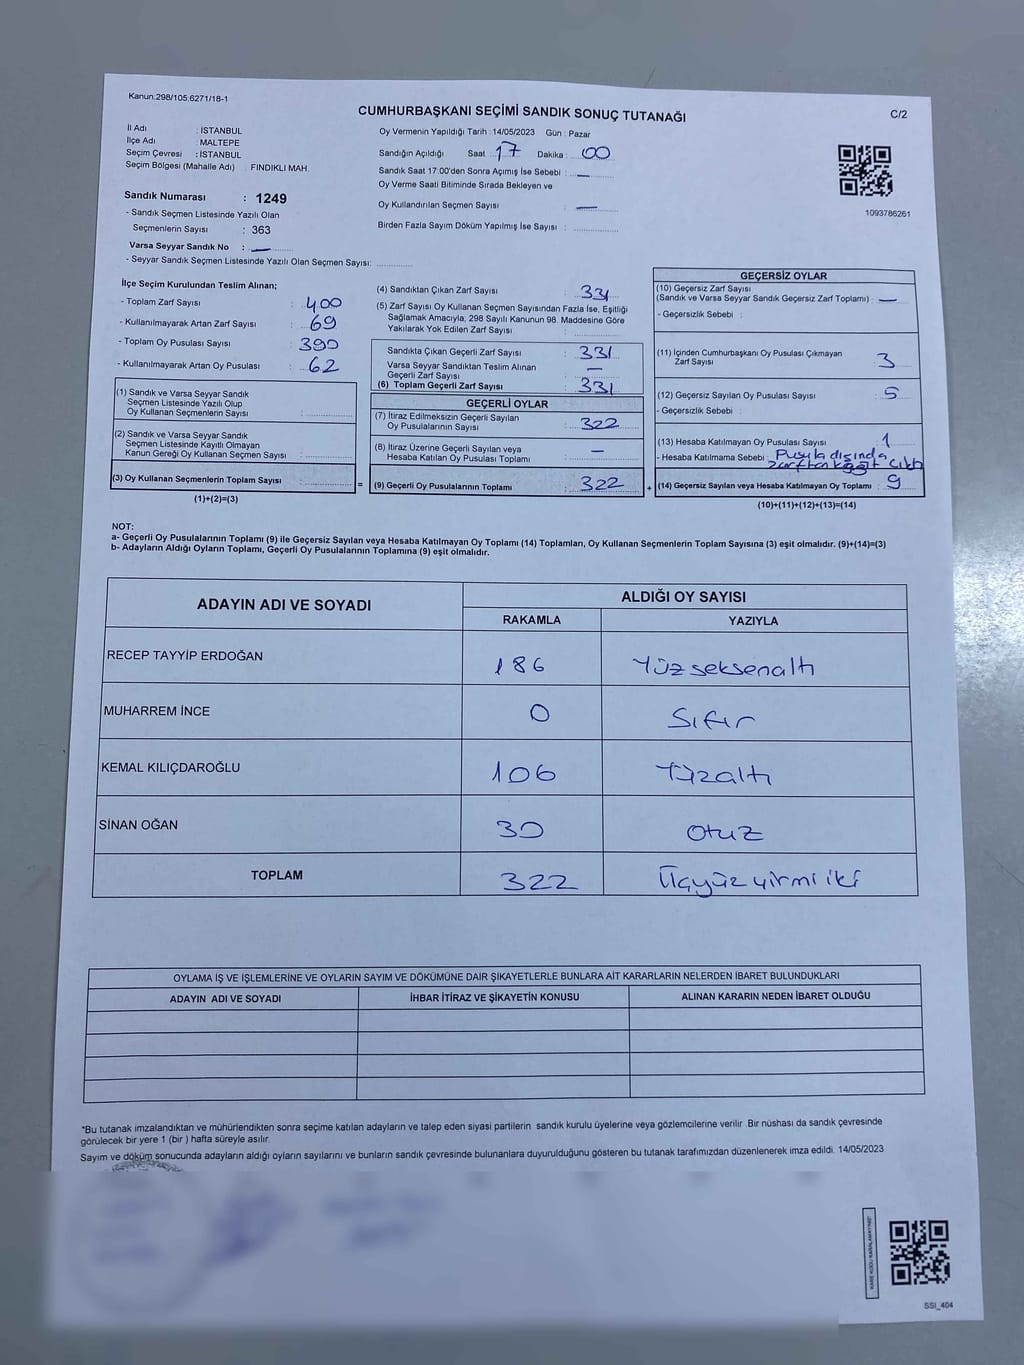 Kanun:298/105;6271/18-1
CUMHURBAŞKANI SEÇİMİ SANDIK SONUÇ TUTANAĞI
C/2
İl Adı : İSTANBUL
İlçe Adı : MALTEPE
Seçim Çevresi : İSTANBUL
Seçim Bölgesi (Mahalle Adı) : FINDIKLI MAH.
Oy Vermenin Yapıldığı Tarih : 14/05/2023 Gün : Pazar
Sandığın Açıldığı Saat : 17 Dakika : 00
Sandık Saat 17:00'den Sonra Açımış İse Sebebi : —
Oy Verme Saati Bitiminde Sırada Bekleyen ve
Oy Kullandırılan Seçmen Sayısı : —
Birden Fazla Sayım Döküm Yapılmış İse Sayısı :
1093786261
Sandık Numarası : 1249
- Sandık Seçmen Listesinde Yazılı Olan
Seçmenlerin Sayısı : 363
Varsa Seyyar Sandık No : —
- Seyyar Sandık Seçmen Listesinde Yazılı Olan Seçmen Sayısı:
İlçe Seçim Kurulundan Teslim Alınan;
- Toplam Zarf Sayısı : 400
- Kullanılmayarak Artan Zarf Sayısı : 69
- Toplam Oy Pusulası Sayısı : 390
- Kullanılmayarak Artan Oy Pusulası : 62
(1) Sandık ve Varsa Seyyar Sandık
Seçmen Listesinde Yazılı Olup
Oy Kullanan Seçmenlerin Sayısı :
(2) Sandık ve Varsa Seyyar Sandık
Seçmen Listesinde Kayıtlı Olmayan
Kanun Gereği Oy Kullanan Seçmen Sayısı :
(3) Oy Kullanan Seçmenlerin Toplam Sayısı :
(1)+(2)=(3)
(4) Sandıktan Çıkan Zarf Sayısı : 331
(5) Zarf Sayısı Oy Kullanan Seçmen Sayısından Fazla İse, Eşitliği
Sağlamak Amacıyla; 298 Sayılı Kanunun 98. Maddesine Göre
Yakılarak Yok Edilen Zarf Sayısı :
Sandıkta Çıkan Geçerli Zarf Sayısı : 331
Varsa Seyyar Sandıktan Teslim Alınan
Geçerli Zarf Sayısı : —
(6) Toplam Geçerli Zarf Sayısı : 331
GEÇERLİ OYLAR
(7) İtiraz Edilmeksizin Geçerli Sayılan
Oy Pusulalarının Sayısı : 322
(8) İtiraz Üzerine Geçerli Sayılan veya
Hesaba Katılan Oy Pusulası Toplamı : —
= (9) Geçerli Oy Pusulalarının Toplamı : 322 +
GEÇERSİZ OYLAR
(10) Geçersiz Zarf Sayısı
(Sandık ve Varsa Seyyar Sandık Geçersiz Zarf Toplamı) : —
- Geçersizlik Sebebi :
(11) İçinden Cumhurbaşkanı Oy Pusulası Çıkmayan
Zarf Sayısı : 3
(12) Geçersiz Sayılan Oy Pusulası Sayısı : 5
- Geçersizlik Sebebi :
(13) Hesaba Katılmayan Oy Pusulası Sayısı : 1
- Hesaba Katılmama Sebebi : Pusula dışında
zarftan kağıt çıktı
(14) Geçersiz Sayılan veya Hesaba Katılmayan Oy Toplamı : 9
(10)+(11)+(12)+(13)=(14)
NOT:
a- Geçerli Oy Pusulalarının Toplamı (9) ile Geçersiz Sayılan veya Hesaba Katılmayan Oy Toplamı (14) Toplamları, Oy Kullanan Seçmenlerin Toplam Sayısına (3) eşit olmalıdır. (9)+(14)=(3)
b- Adayların Aldığı Oyların Toplamı, Geçerli Oy Pusulalarının Toplamına (9) eşit olmalıdır.
ADAYIN ADI VE SOYADI
ALDIĞI OY SAYISI
RAKAMLA YAZIYLA
RECEP TAYYİP ERDOĞAN 186 Yüzseksenaltı
MUHARREM İNCE 0 Sıfır
KEMAL KILIÇDAROĞLU 106 Yüzaltı
SİNAN OĞAN 30 Otuz
TOPLAM 322 Üçyüzyirmiiki
OYLAMA İŞ VE İŞLEMLERİNE VE OYLARIN SAYIM VE DÖKÜMÜNE DAİR ŞİKAYETLERLE BUNLARA AİT KARARLARIN NELERDEN İBARET BULUNDUKLARI
ADAYIN ADI VE SOYADI İHBAR İTİRAZ VE ŞİKAYETİN KONUSU ALINAN KARARIN NEDEN İBARET OLDUĞU
*Bu tutanak imzalandıktan ve mühürlendikten sonra seçime katılan adayların ve talep eden siyasi partilerin sandık kurulu üyelerine veya gözlemcilerine verilir. Bir nüshası da sandık çevresinde
görülecek bir yere 1 (bir ) hafta süreyle asılır.
Sayım ve döküm sonucunda adayların aldığı oyların sayılarını ve bunların sandık çevresinde bulunanlara duyurulduğunu gösteren bu tutanak tarafımızdan düzenlenerek imza edildi. 14/05/2023
SSI_404